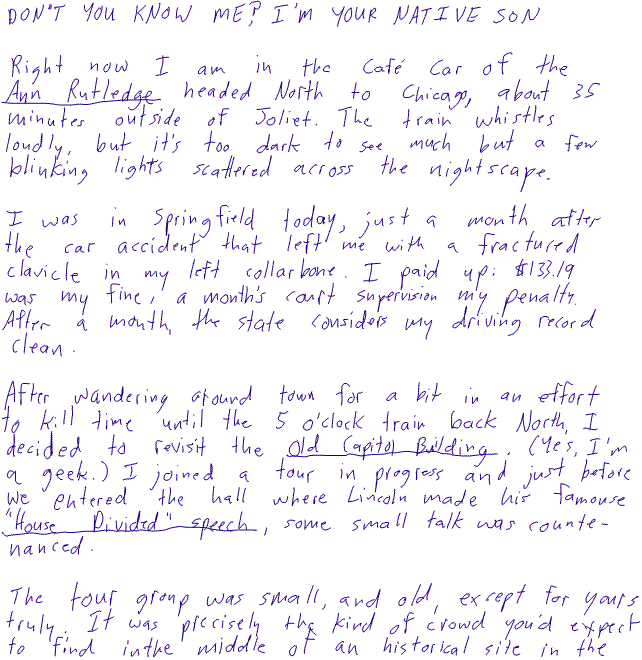 DON'T YOU KNOW ME? I'M YOUR NATIVE SON
Right now I am in the Café Car of the
Ann Rutledge headed North to Chicago, about 35
minutes outside of Joliet. The train whistles
loudly, but it's too dark to see much but a few
blinking lights scattered across the nightscape.
I was in Springfield today, just a month after
the car accident that left me with a fractured
clavicle in my left collarbone. I paid up: $133.19
was my fine, a month's court supervision my penalty.
After a month, the state considers my driving record
clean.
After wandering around town for a bit in an effort
to kill time until the 5 o'clock train back North, I
decided to revisit the Old Capitol Building. (Yes, I'm
a geek.) I joined a tour in progress and just before
we entered the hall where Lincoln made his famouse
"House Divided" speech, some small talk was counte-
nanced.
The tour group was small, and old, except for yours
truly. It was precisely the kind of crowd you'd expect
to find inthe middle of an historical site in the